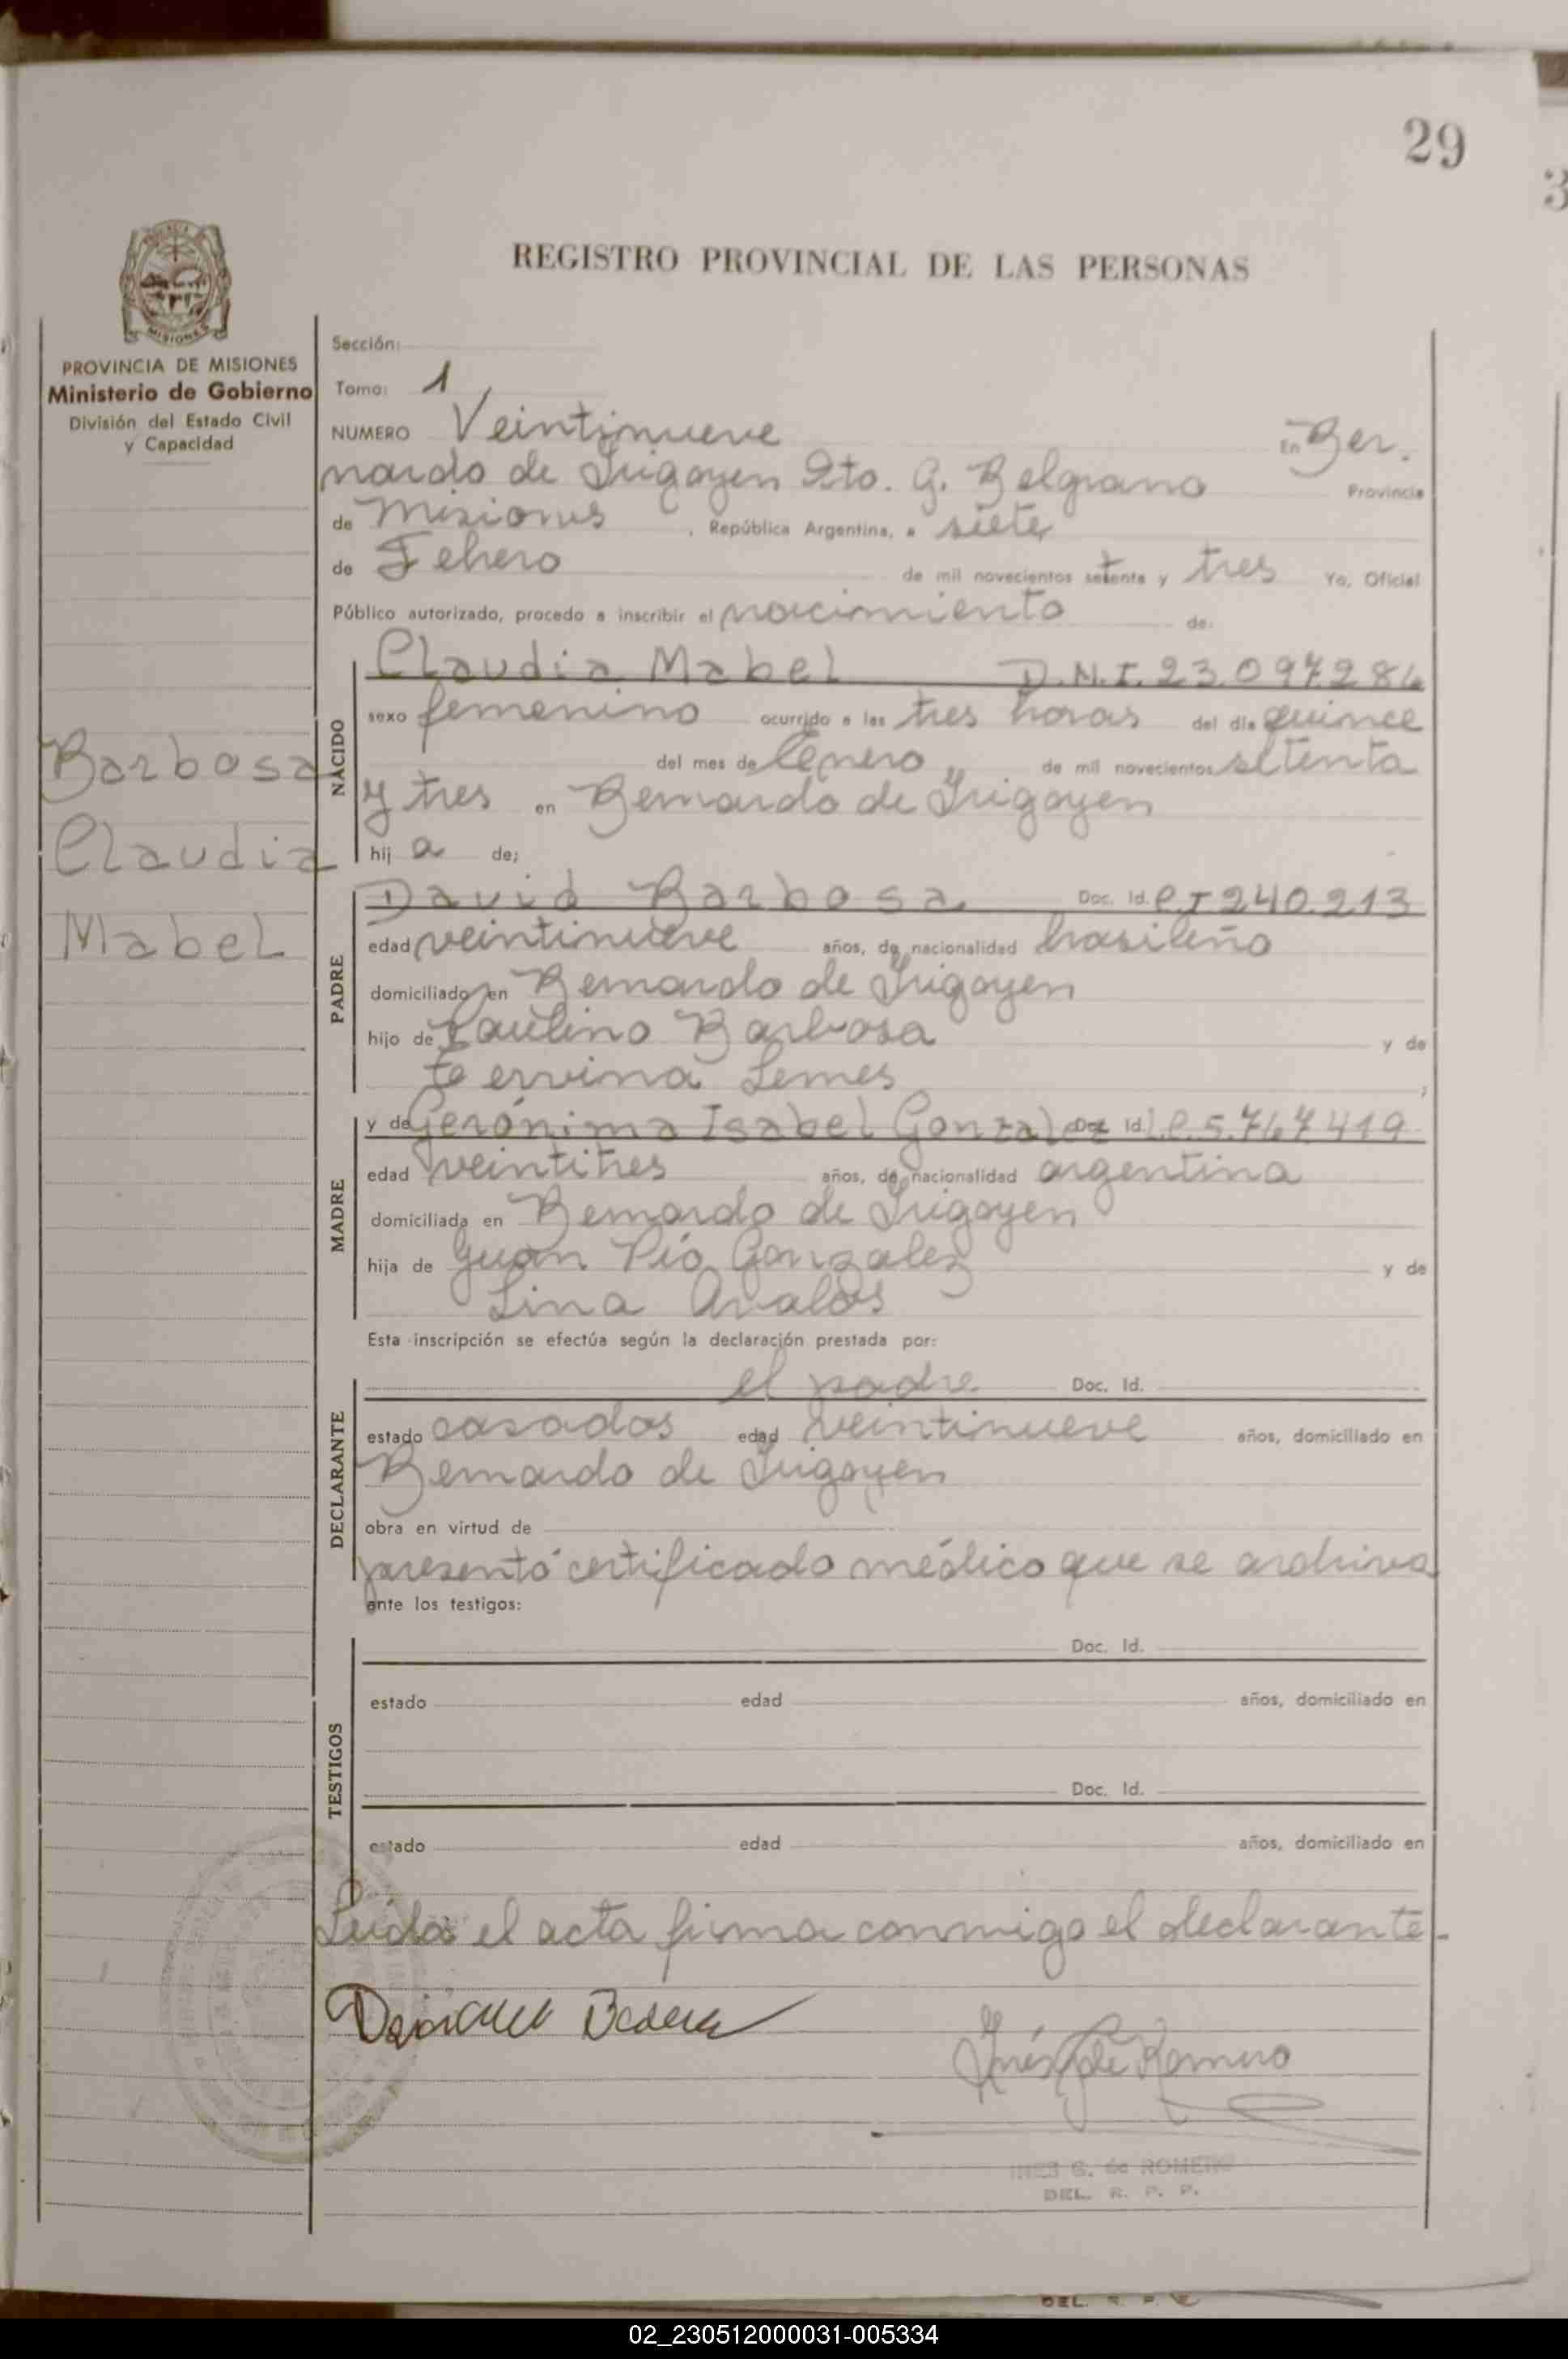 29
3
REGISTRO PROVINCIAL DE LAS PERSONAS
MISIONES
PROVINCIA DE MISIONES
Ministerio de Gobierno
División del Estado Civil
y Capacidad
Barbosa
Claudia
Mabel
Sección:
Tomo: 1
NUMERO Veintinueve En Ber.
nardo de Irigoyen Dto. G. Belgrano Provincia
de Misiones, República Argentina, a siete
de Febrero de mil novecientos setenta y tres Yo, Oficial
Público autorizado, procedo a inscribir el nacimiento de:
NACIDO
Claudia Mabel D.N.I. 23.097.286
sexo femenino ocurrido a las tres horas del día quince
del mes de Enero de mil novecientos setenta
y tres en Bernardo de Irigoyen
hij a de;
PADRE
David Barbosa Doc. Id. C I 240.213
edad veintinueve años, de nacionalidad brasileño
domiciliado en Bernardo de Irigoyen
hijo de Paulino Barbosa y de
Lemes;
MADRE
y de Gerónima Isabel Gonzalez Doc. Id. L.C. 5.767.419
edad veintitres años, de nacionalidad argentina
domiciliada en Bernardo de Irigoyen
hija de Juan Pío Gonzalez y de
Lina Avalos
Esta inscripción se efectúa según la declaración prestada por:
DECLARANTE
el padre Doc. Id.
estado casados edad veintinueve años, domiciliado en
Bernardo de Irigoyen
obra en virtud de
presentó certificado médico que se archiva
ante los testigos:
TESTIGOS
Doc. Id.
estado edad años, domiciliado en
Doc. Id.
estado edad años, domiciliado en
Leída el acta firma conmigo el declarante.-
Inés G de Romero
INES G. de ROMERO
DEL. R. P. P.
DEL. R. P. P.
02_230512000031-005334